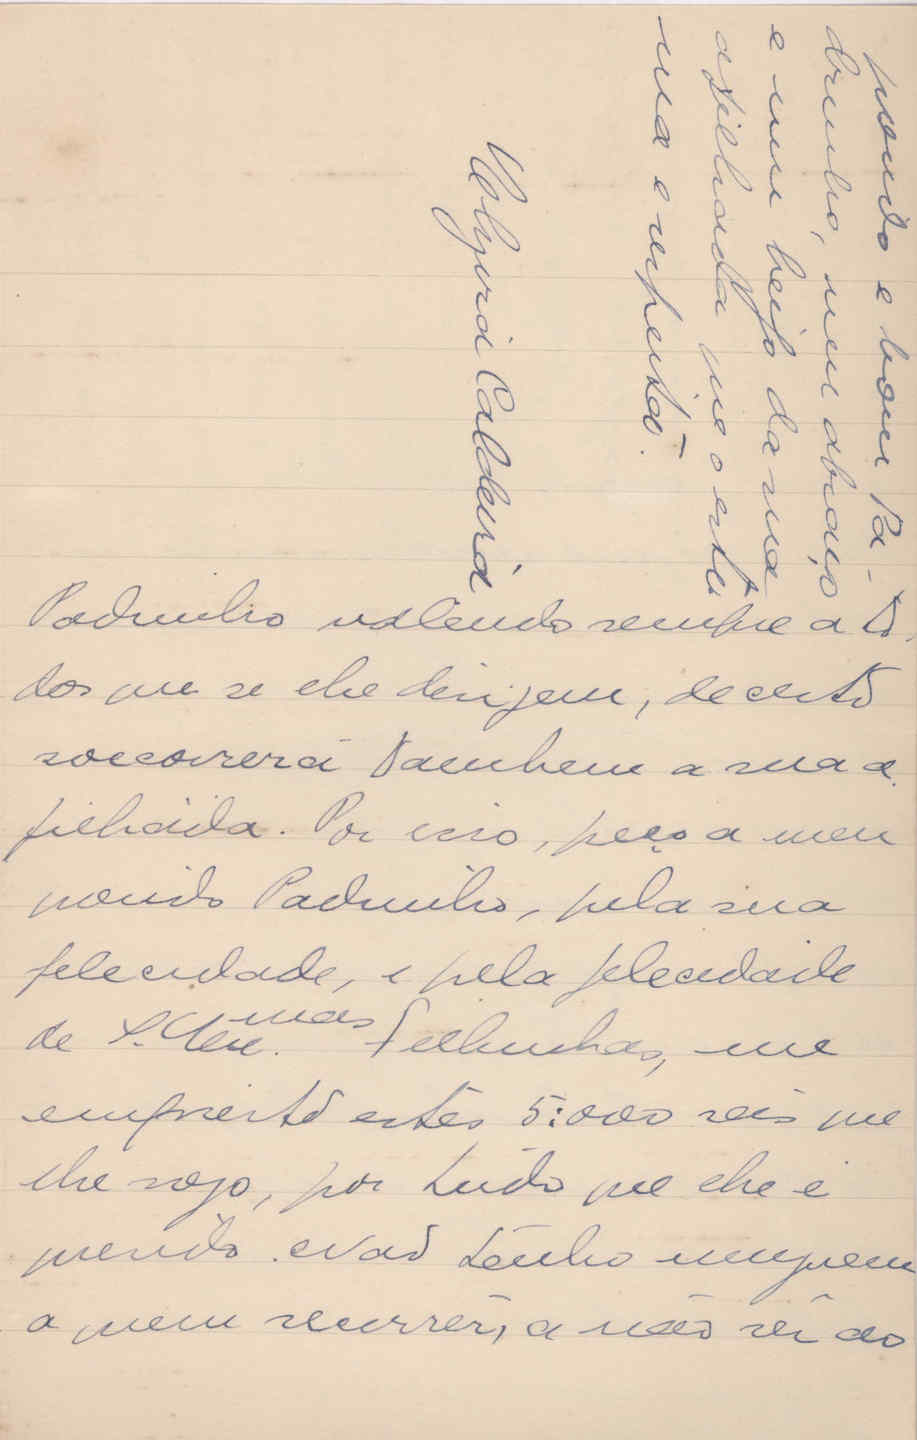 Padrinho valendo sempre a to-
dos que se lhe dirijem, decerto
soccorrerá tambem a sua a
filhada. Por isso, peço a meu
querido Padrinho, pela sua
felecidade, e pela felecidade
de S. Ex.mas Filhinhas, me
empreste estes 5:000 reis que
lhe rogo, por tudo que lhe é
querido. Não tenho ninguem
a quem recorrer, a não ser ao
querido e bom Pa-
drinho, um abraço
e um beijo da sua
afilhada que o esti
ma e respeita.
Caldeira